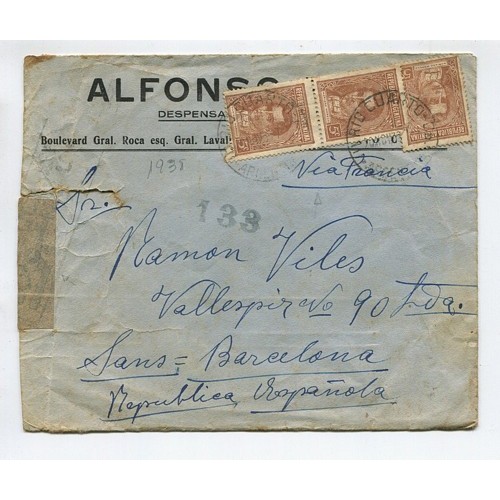 ALFONSO
DESPENSA
Boulevard Gral. Roca esq. Gral. Laval
1938
Via Francia
133
Sr.
Ramon Viles
Vallespir No 90 Tda.
Sans = Barcelona
Republica Española